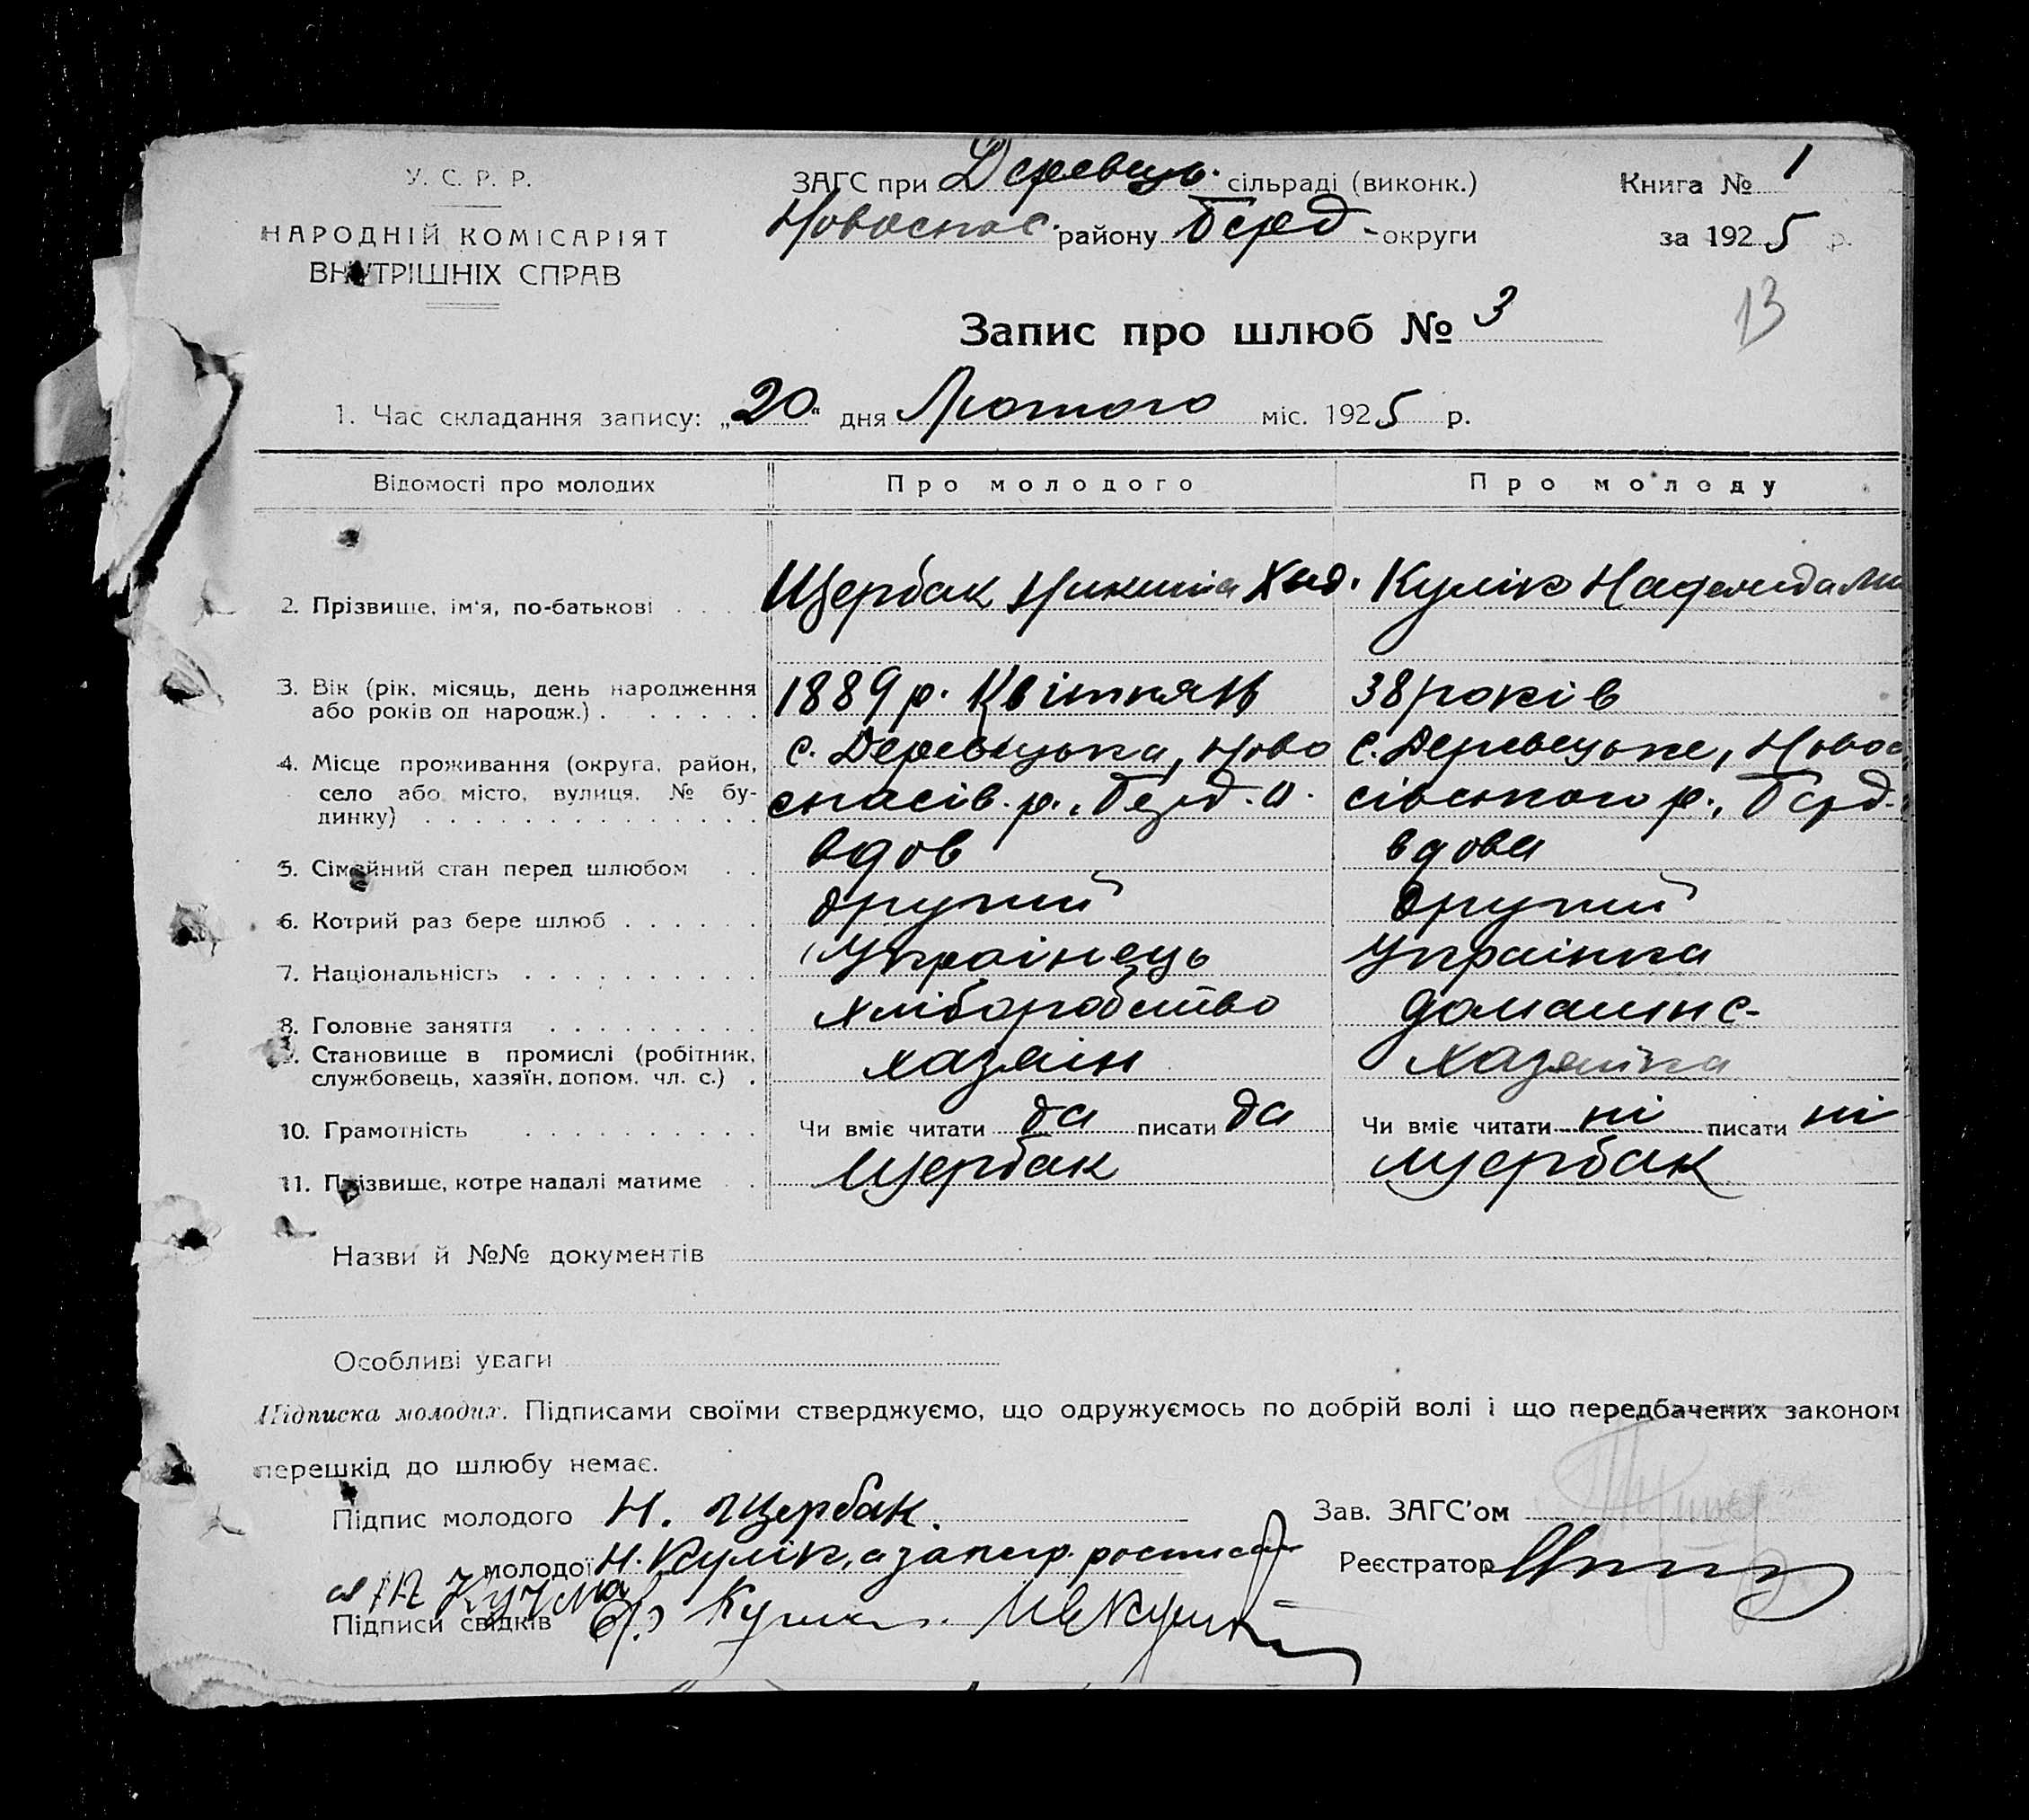 У. С. Р. Р.
НАРОДНІЙ КОМІСАРІЯТ
ВНУТРІШНІХ СПРАВ
ЗАГС при Деревець. сільраді (виконк.)
Новоспас. району Берд- округи
Книга № 1
за 1925 р.
13
Запис про шлюб № 3
1. Час складання запису: „20" дня Лютого міс. 1925 р.
Відомості про молодих Про молодого Про молоду
2. Прізвище, ім'я, по-батькові . . . . Щербак Никита Кулік
3. Вік (рік, місяць, день народження
або років од народж.) . . . . . . . 1889 р. Квітня 38 років
4. Місце проживання (округа, район,
село або місто, вулиця, № бу-
динку) . . . . . . . . . . . . . .
с. Деревецька, Ново с. Деревецьке, Новос
спасів. р., Берд. о. сівського р., Берд.
5. Сімейний стан перед шлюбом . . вдов вдова
6. Котрий раз бере шлюб . . . . . . другий другий
7. Національність . . . . . . . . . . Українець Українка
8. Головне заняття . . . . . . . . . хліборобство домашнє-
9. Становище в промислі (робітник,
службовець, хазяїн, допом. чл. с.) . хазяін хазяйка
10. Грамотність . . . . . . . . . . Чи вміє читати да писати да Чи вміє читати ні писати ні
11. Прізвище, котре надалі матиме . . Щербак Щербак
Назви й №№ документів
Особливі уваги
Підписка молодих. Підписами своїми стверджуємо, що одружуємось по добрій волі і що передбачених законом
перешкід до шлюбу немає.
Підпис молодого Н. Щербак.
Зав. ЗАГС'ом
молодої Н. Кулік, а за негр.
Реєстратор
Підписи свідків